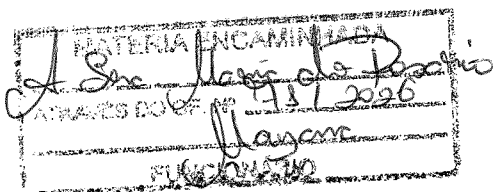 MATÉRIA ENCAMINHADA
A Sra Maria do Rosário
ATRAVÉS DO OF. Nº 173 / 2026
FUNCIONÁRIO